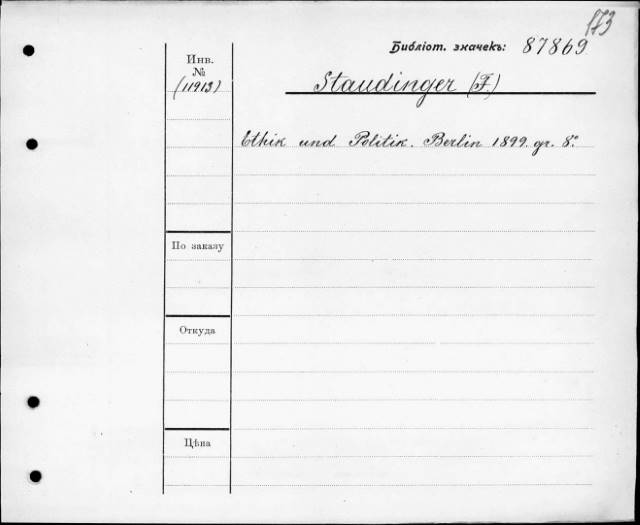 173
Библіот. значекъ: 87869
Инв.
№
(11913)
Staudinger (F.)
Ethik und Politik. Berlin 1899. gr. 8°.
По заказу
Откуда
Цѣна